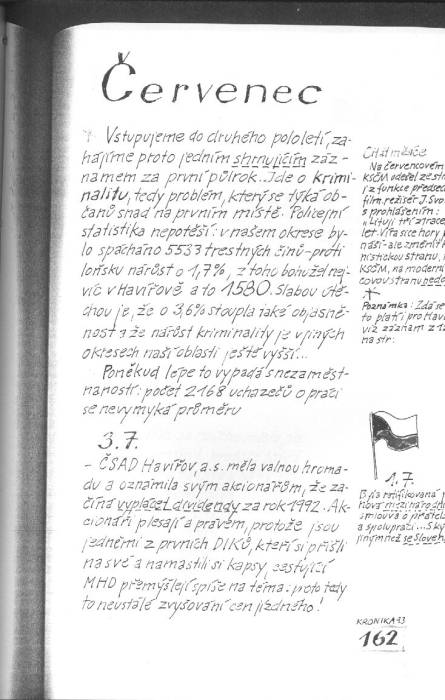 Červenec
Vstupujeme do druhého pololetí, za-
hájíme proto jedním shrnujícím záz-
namem za první půlrok. Jde o krimi-
nalitu, tedy problém, který se týká ob-
čanů snad na prvním místě. Policejní
statistika nepotěší: v našem okrese by-
lo spácháno 5533 trestných činů - proti
loňsku nárůst o 1,7%, z toho bohužel nej-
víc v Havířově a to 1580. Slabou útě-
chou je, že o 3,6% stoupla také objasně-
nost a že nárůst kriminality je v jiných
okresech naší oblasti ještě vyšší...
Poněkud lépe to vypadá s nezaměst-
naností: počet 2168 uchazečů o práci
se nevymyká průměru
3.7.
- ČSAD Havířov, a.s. měla valnou hroma-
du a oznámila svým akcionářům, že za-
číná vyplácet dividendy za rok 1992. Ak-
cionáři plesají a právem, protože jsou
jedněmi z prvních DIKů, kteří si přišli
na své a namastili si kapsy, cestující
MHD přemýšlejí spíše na téma: proto tedy
to neustálé zvyšování cen jízdného!
Citát měsíce
Na červencovém
KSČM odešel ze st
i z funkce předsed
film. režisér J. Svo
s prohlášením:
"Lituji tří ztrace
let. Víta sice hory p
náší - ale změnit k
nistickou stranu,
KSČM, na moderní
covou stranu nedo
Poznámka: Zdá se
to platí pro Haví
viz záznam z 1
na str:
1.7.
Byla ratifikována
nová mezinárodní
smlouva o přátels
a spolupráci... S k
jiným než se Sloven
KRONIKA 93
162